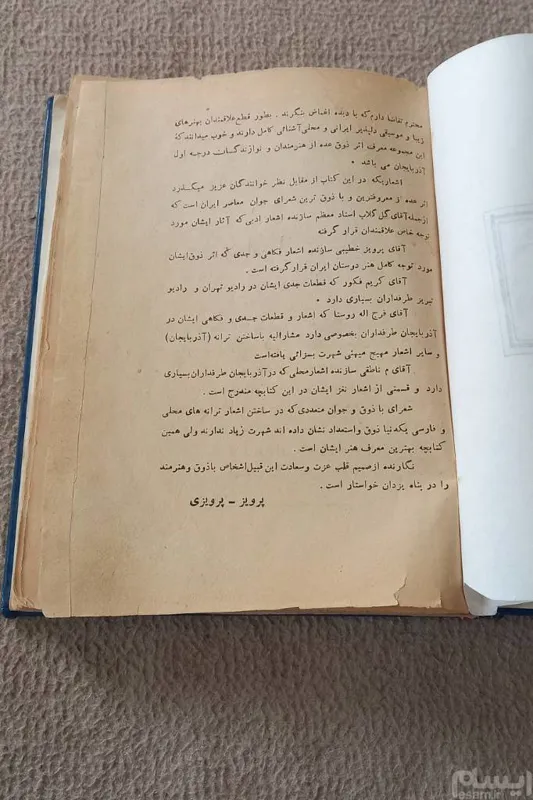 محترم تقاضا دارم که با دیده اغماض بنگرند . بطور قطع علاقمندان بهنرهای
زیبا و موسیقی دلپذیر ایرانی و محلی آشنائی کامل دارند و خوب میدانند که
این مجموعه معرف اثر ذوق عده از هنرمندان و نوازندگسان درجه اول
آذربایجان می باشد .
اشعاریکه در این کتاب از مقابل نظر خوانندگان عزیز میگذرد
اثر عده از معروفترین و با ذوق ترین شعرای جوان معاصر ایران است که
ازجمله آقای گل گلاب استاد معظم سازنده اشعار ادبی که آثار ایشان مورد
توجه خاص علاقمندان قرار گرفته
آقای پرویز خطیبی سازنده اشعار فکاهی و جدی که اثر ذوق ایشان
مورد توجه کامل هنر دوستان ایران قرار گرفته است .
آقای کریم فکور که قطعات جدی ایشان در رادیو تهران و رادیو
تبریز طرفداران بسیاری دارد .
آقای فرج اله روستا که اشعار و قطعات جدی و فکاهی ایشان در
آذربایجان طرفداران بخصوصی دارد مشارالیه باساختن ترانه (آذربایجان)
و سایر اشعار مهیج میهنی شهرت بسزائی یافته‌است
آقای م ناطقی سازنده اشعار محلی که در آذربایجان طرفداران بسیاری
دارد و قسمتی از اشعار نغز ایشان در این کتابچه مندرج است .
شعرای با ذوق و جوان متعددی که در ساختن اشعار ترانه های محلی
و فارسی یکدنیا ذوق واستعداد نشان داده اند شهرت زیاد ندارند ولی همین
کتابچه بهترین معرف هنر ایشان است .
نگارنده ازصمیم قلب عزت وسعادت این قبیل اشخاص باذوق وهنرمند
را در پناه یزدان خواستار است .
پرویز – پرویزی
ایسام
esam.ir